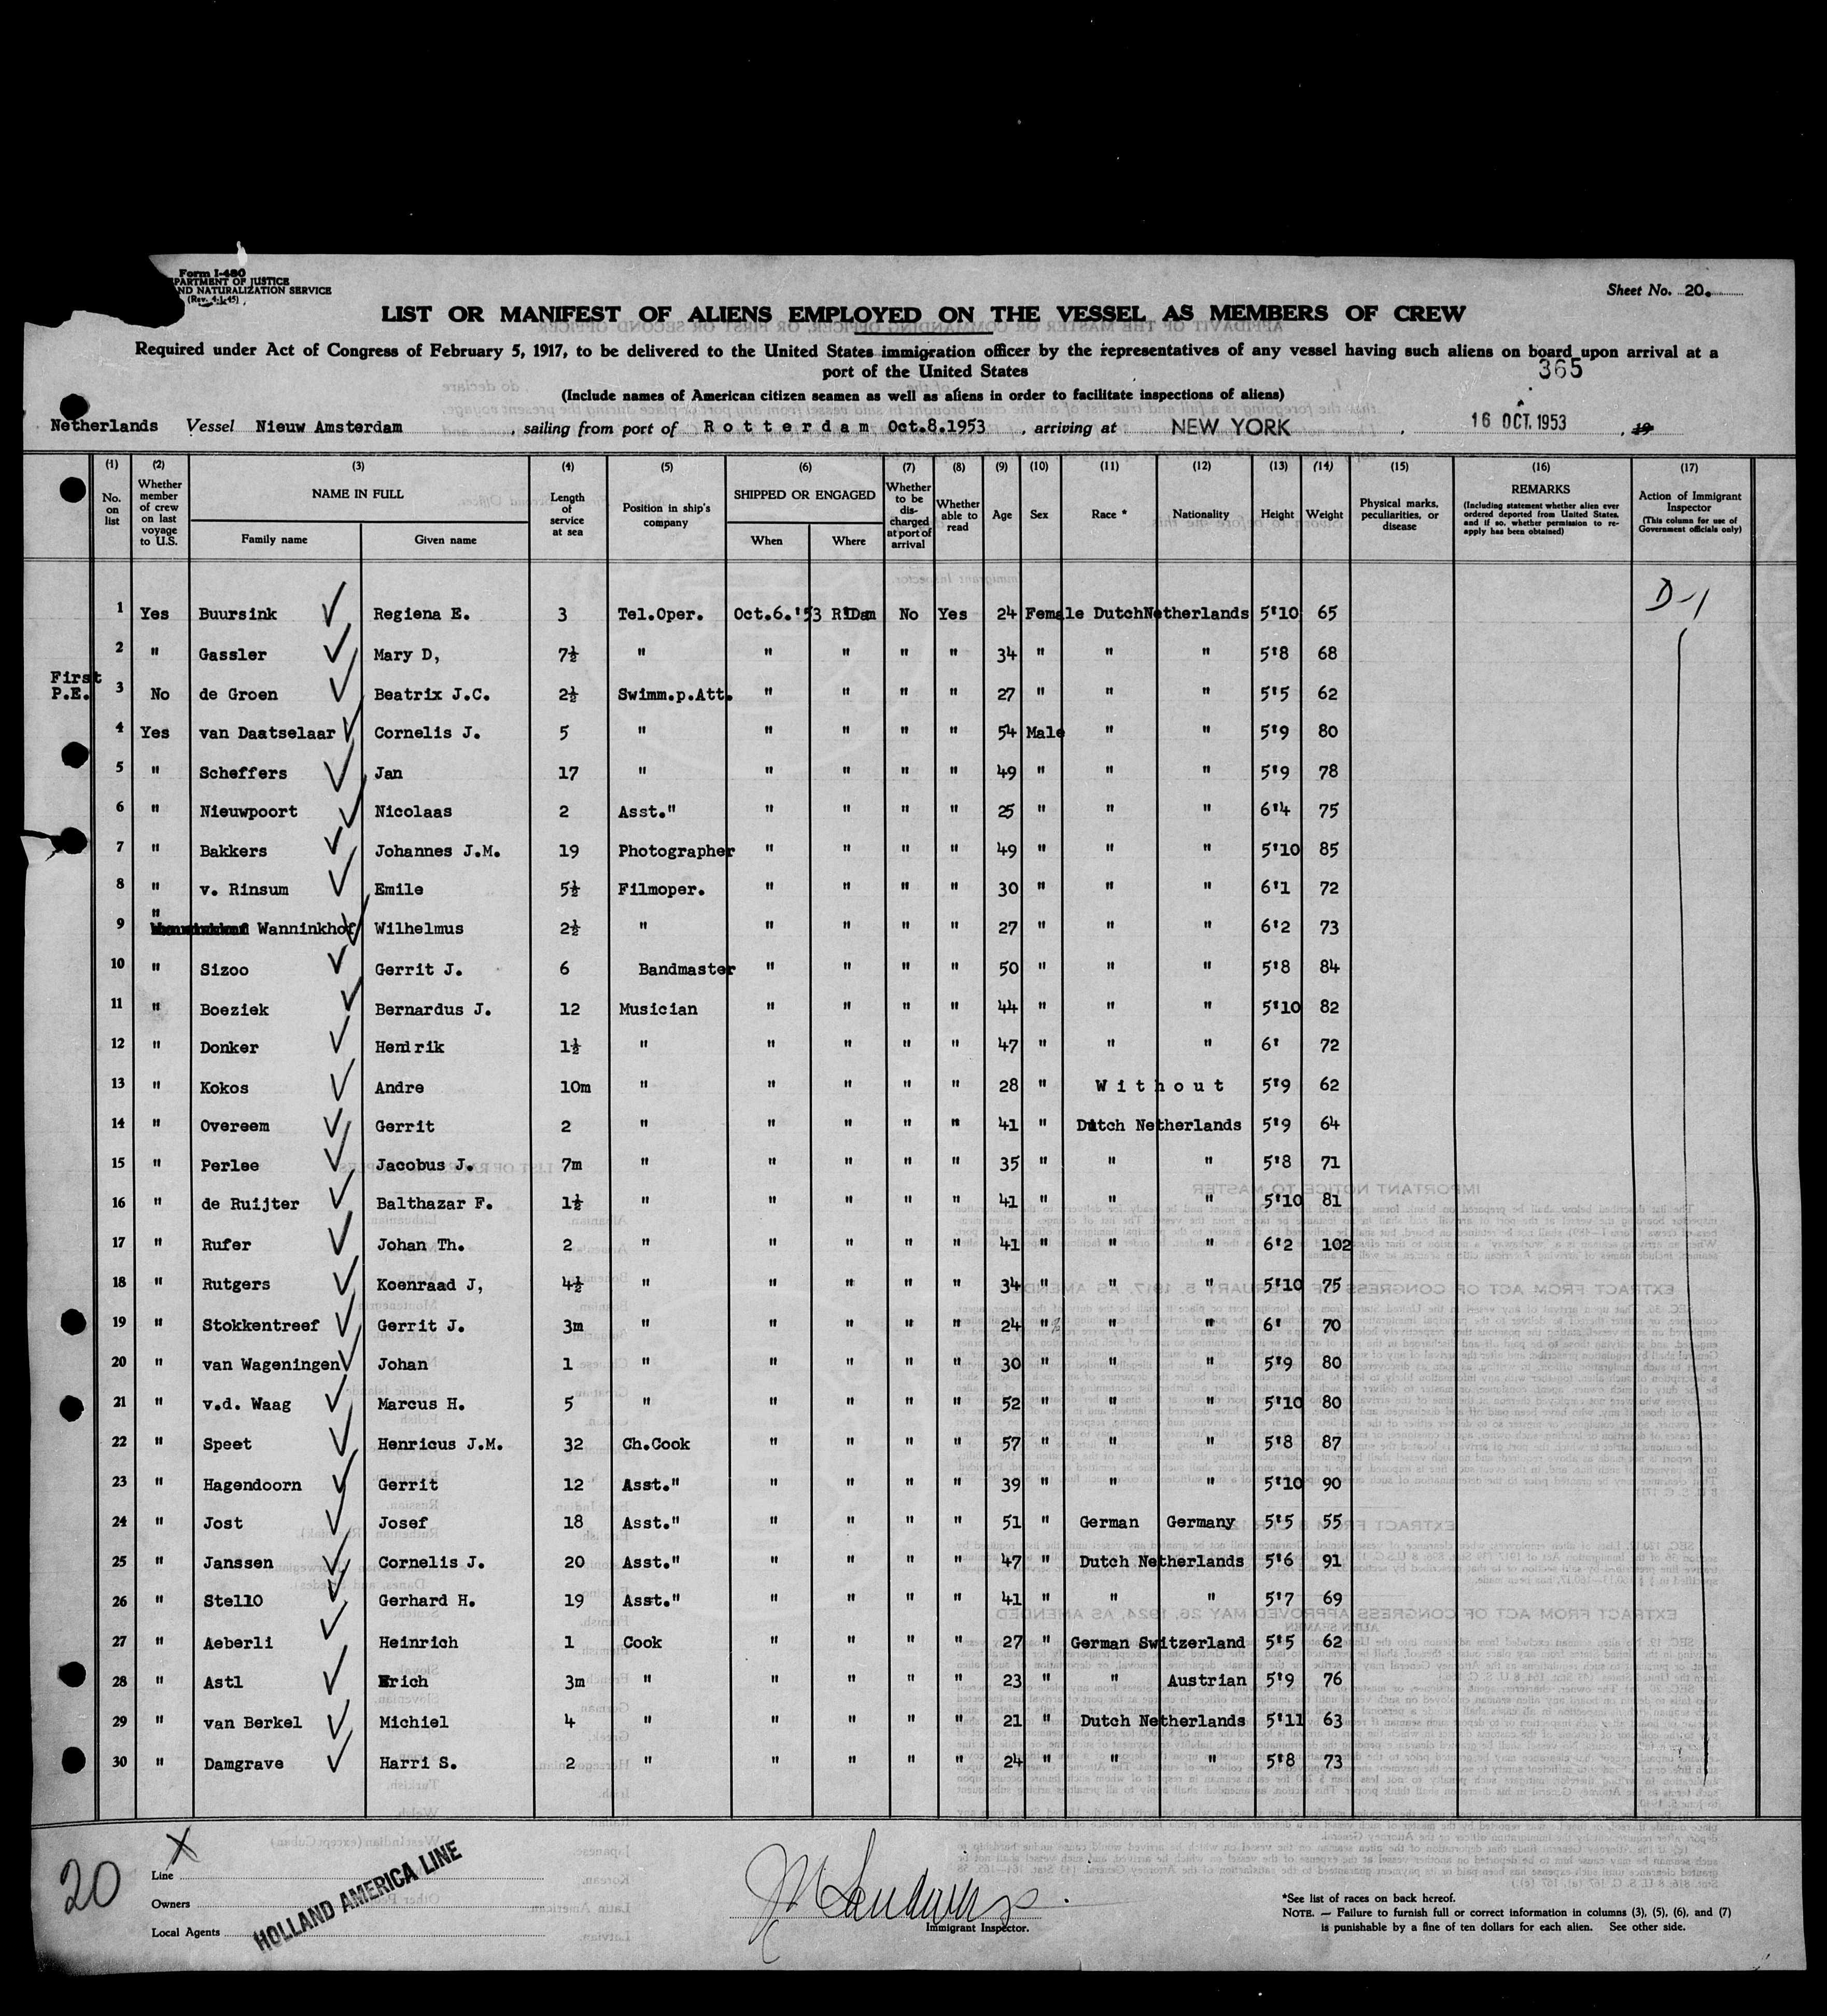 Form I-480
PARTMENT OF JUSTICE
AND NATURALIZATION SERVICE
(Rev. 4-1-45)
Sheet No. 20.
LIST OR MANIFEST OF ALIENS EMPLOYED ON THE VESSEL AS MEMBERS OF CREW
Required under Act of Congress of February 5, 1917, to be delivered to the United States immigration officer by the representatives of any vessel having such aliens on board upon arrival at a
port of the United States
365
(Include names of American citizen seamen as well as aliens in order to facilitate inspections of aliens)
Netherlands Vessel Nieuw Amsterdam, sailing from port of Rotterdam Oct.8.1953, arriving at NEW YORK, 16 OCT. 1953, 19
(1) No. on list (2) Whether member of crew on last voyage to U.S. (3) NAME IN FULL Family name Given name (4) Length of service at sea (5) Position in ship's company (6) SHIPPED OR ENGAGED When Where (7) Whether to be discharged at port of arrival (8) Whether able to read (9) Age (10) Sex (11) Race * (12) Nationality (13) Height (14) Weight (15) Physical marks, peculiarities, or disease (16) REMARKS (Including statement whether alien ever ordered deported from United States, and if so, whether permission to reapply has been obtained) (17) Action of Immigrant Inspector (This column for use of Government officials only)
1 Yes Buursink Regiena E. 3 Tel.Oper. Oct.6.'53 R'Dam No Yes 24 Female Dutch Netherlands 5'10 65 D-1
2 " Gassler Mary D, 7½ " " " " " 34 " " " 5'8 68
First P.E. 3 No de Groen Beatrix J.C. 2½ Swimm.p.Att. " " " " 27 " " " 5'5 62
4 Yes van Daatselaar Cornelis J. 5 " " " " " 54 Male " " 5'9 80
5 " Scheffers Jan 17 " " " " " 49 " " " 5'9 78
6 " Nieuwpoort Nicolaas 2 Asst." " " " " 25 " " " 6'4 75
7 " Bakkers Johannes J.M. 19 Photographer " " " " 49 " " " 5'10 85
8 " v. Rinsum Emile 5½ Filmoper. " " " " 30 " " " 6'1 72
9 " Wanninkhof Wilhelmus 2½ " " " " " 27 " " " 6'2 73
10 " Sizoo Gerrit J. 6 Bandmaster " " " " 50 " " " 5'8 84
11 " Boeziek Bernardus J. 12 Musician " " " " 44 " " " 5'10 82
12 " Donker Hendrik 1½ " " " " " 47 " " " 6' 72
13 " Kokos Andre 10m " " " " " 28 " Without 5'9 62
14 " Overeem Gerrit 2 " " " " " 41 " Dutch Netherlands 5'9 64
15 " Perlee Jacobus J. 7m " " " " " 35 " " " 5'8 71
16 " de Ruijter Balthazar F. 1½ " " " " " 41 " " " 5'10 81
17 " Rufer Johan Th. 2 " " " " " 41 " " " 6'2 102
18 " Rutgers Koenraad J, 4½ " " " " " 34 " " " 5'10 75
19 " Stokkentreef Gerrit J. 3m " " " " " 24 " " " 6' 70
20 " van Wageningen Johan 1 " " " " " 30 " " " 5'9 80
21 " v.d. Waag Marcus H. 5 " " " " " 52 " " " 5'10 80
22 " Speet Henricus J.M. 32 Ch.Cook " " " " 57 " " " 5'8 87
23 " Hagendoorn Gerrit 12 Asst." " " " " 39 " " " 5'10 90
24 " Jost Josef 18 Asst." " " " " 51 " German Germany 5'5 55
25 " Janssen Cornelis J. 20 Asst." " " " " 47 " Dutch Netherlands 5'6 91
26 " Stello Gerhard H. 19 Asst." " " " " 41 " " " 5'7 69
27 " Aeberli Heinrich 1 Cook " " " " 27 " German Switzerland 5'5 62
28 " Astl Erich 3m " " " " " 23 " " Austrian 5'9 76
29 " van Berkel Michiel 4 " " " " " 21 " Dutch Netherlands 5'11 63
30 " Damgrave Harri S. 2 " " " " " 24 " " " 5'8 73
20
Line
Owners
Local Agents
HOLLAND AMERICA LINE
Immigrant Inspector.
*See list of races on back hereof.
NOTE. — Failure to furnish full or correct information in columns (3), (5), (6), and (7)
is punishable by a fine of ten dollars for each alien. See other side.